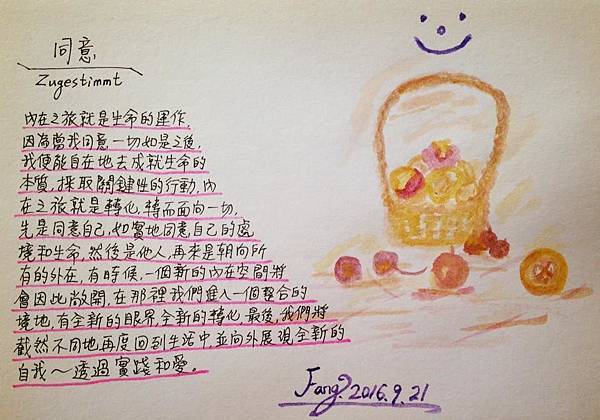 同意
Zugestimmt
內在之旅就是生命的運作,
因為當我同意一切如是之後,
我便能自在地去成就生命的
本質,採取關鍵性的行動,內
在之旅就是轉化,轉而面向一切,
先是同意自己,如實地同意自己的處
境和生命,然後是他人,再來是朝向所
有的外在,有時候,一個新的內在空間將
會因此敞開,在那裡我們進入一個整合的
境地,有全新的眼界,全新的轉化,最後,我們將
截然不同地再度回到生活中,並向外展現全新的
自我~透過實踐和愛。
Fang 2016.9.21